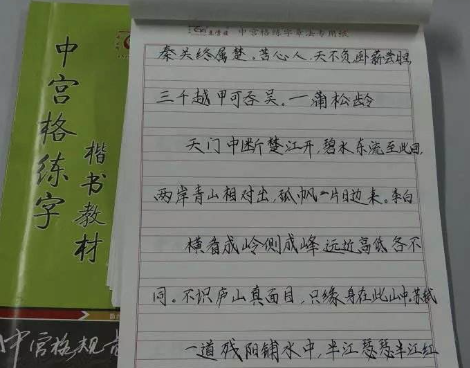 中宫格练字
楷书教材
中宫格规
中宫格练字章法专用纸
秦关终属楚。苦心人,天不负,卧薪尝胆
三千越甲可吞吴。一蒲松龄
天门中断楚江开,碧水东流至此回,
两岸青山相对出,孤帆一片日边来。李白
横看成岭侧成峰,远近高低各不
同。不识庐山真面目,只缘身在此山中。苏轼
一道残阳铺水中,半江瑟瑟半江红